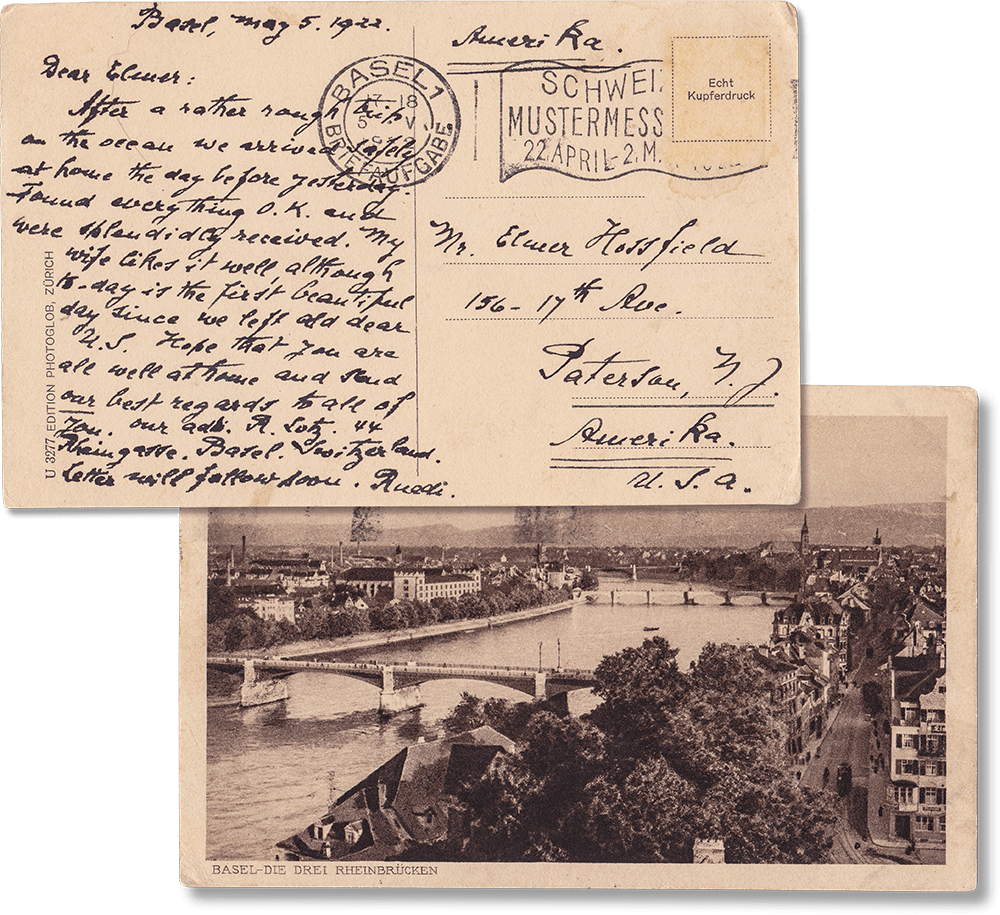 Basel, May 5. 1922.
Dear Elmer:
After a rather rough trip
on the ocean we arrived safely
at home the day before yesterday.
Found everything O.K. and
were splendidly received. My
wife likes it well, although
to-day is the first beautiful
day since we left old dear
U.S. Hope that you are
all well at home and send
our best regards to all of
you. our adr. R. Lotz. 44
Rheingasse. Basel. Switzerland.
Letter will follow soon. Ruedi.
U 3277 EDITION PHOTOGLOB, ZÜRICH
Amerika.
BASEL 1
17-18
5 V
BRIEFAUFGABE
SCHWEIZ
MUSTERMESS
22. APRIL - 2. M
Echt
Kupferdruck
Mr. Elmer Hossfield
156 - 17th Ave.
Paterson, N. J.
Amerika.
U. S. A.
BASEL-DIE DREI RHEINBRÜCKEN